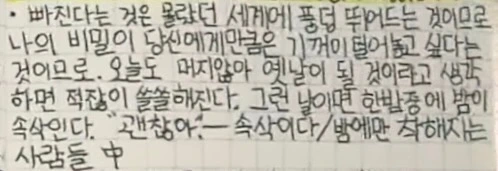 • 빠진다는 것은 몰랐던 세계에 풍덩 뛰어드는 것이므로
나의 비밀이 당신에게만큼은 기꺼이 털어놓고 싶다는
것이므로. 오늘도 머지않아 옛날이 될 것이라고 생각
하면 적잖이 쓸쓸해진다. 그런 날이면 한밤중에 밤이
속삭인다. "괜찮아." — 속삭이다/밤에만 착해지는
사람들 中